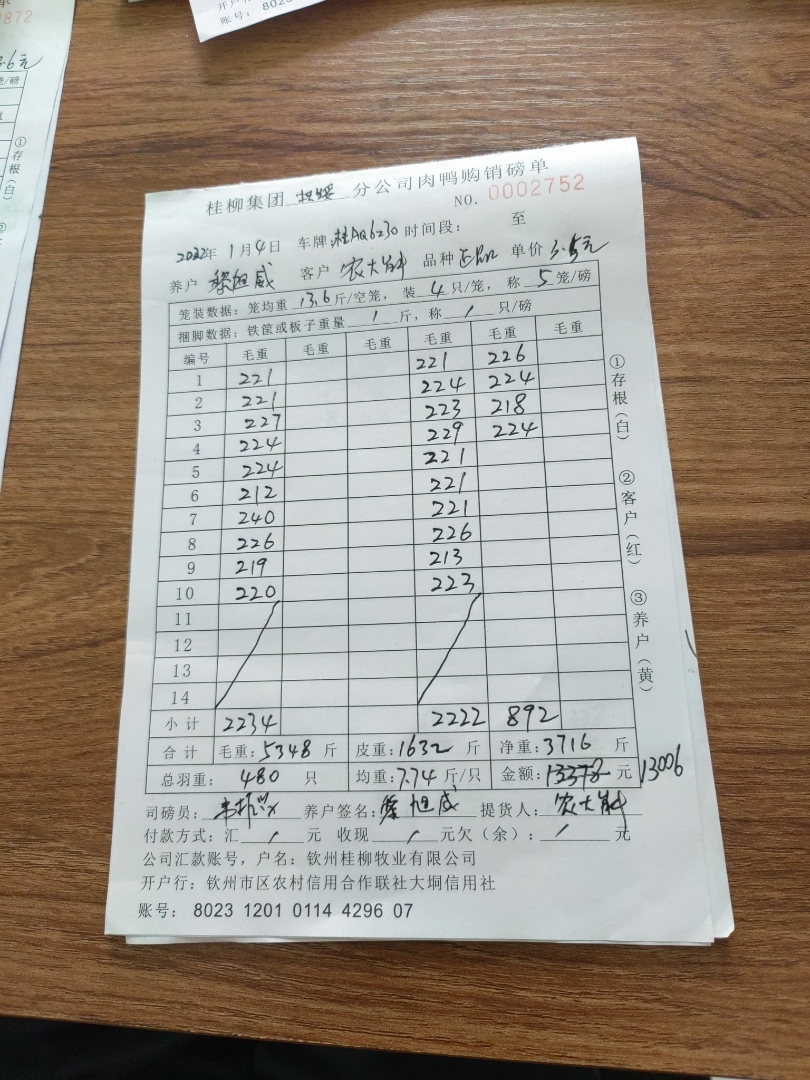 2872
3.6元
开户行
账号： 8023
桂柳集团 扶绥 分公司肉鸭购销磅单
NO. 0002752
2022年 1月4日 车牌：桂AQ6230 时间段： 至
养户 黎旭威 客户 农大 品种 正品 单价 3.5元
笼装数据：笼均重 13.6 斤/空笼， 装 4 只/笼， 称 5 笼/磅
捆脚数据：铁筐或板子重量 / 斤，称 / 只/磅
编号 毛重 毛重 毛重 毛重 毛重 毛重
1 221 221 226
2 221 224 224
3 227 223 218
4 224 229 224
5 224 221
6 212 221
7 240 221
8 226 226
9 219 213
10 220 223
11
12
13
14
小计 2234 2222 892
合计 毛重：5348 斤 皮重：1632 斤 净重：3716 斤
总羽重： 480 只 均重：7.74 斤/只 金额：13378 元 13006
司磅员： 养户签名：黎旭威 提货人：农大
付款方式：汇 / 元 收现 / 元欠（余）： / 元
公司汇款账号，户名：钦州桂柳牧业有限公司
开户行：钦州市区农村信用合作联社大垌信用社
账号： 8023 1201 0114 4296 07
①存根（白）
②客户（红）
③养户（黄）